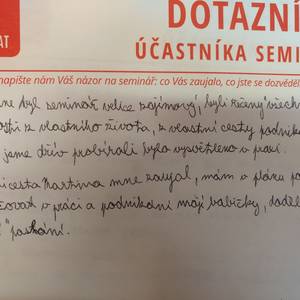 DOTAZNÍ
ÚČASTNÍKA SEMI
AT
napište nám Váš názor na seminář: co Vás zaujalo, co jste se dozvěděl
ne byl seminář velice zajímavý, byli řízený všech
z vlastního života, z vlastní cesty podnik
jsme dřív probírali bylo vysvětleno v praxi.
Martina mne zaujal, mám v plánu po
v práci a podnikání mojí babičky,